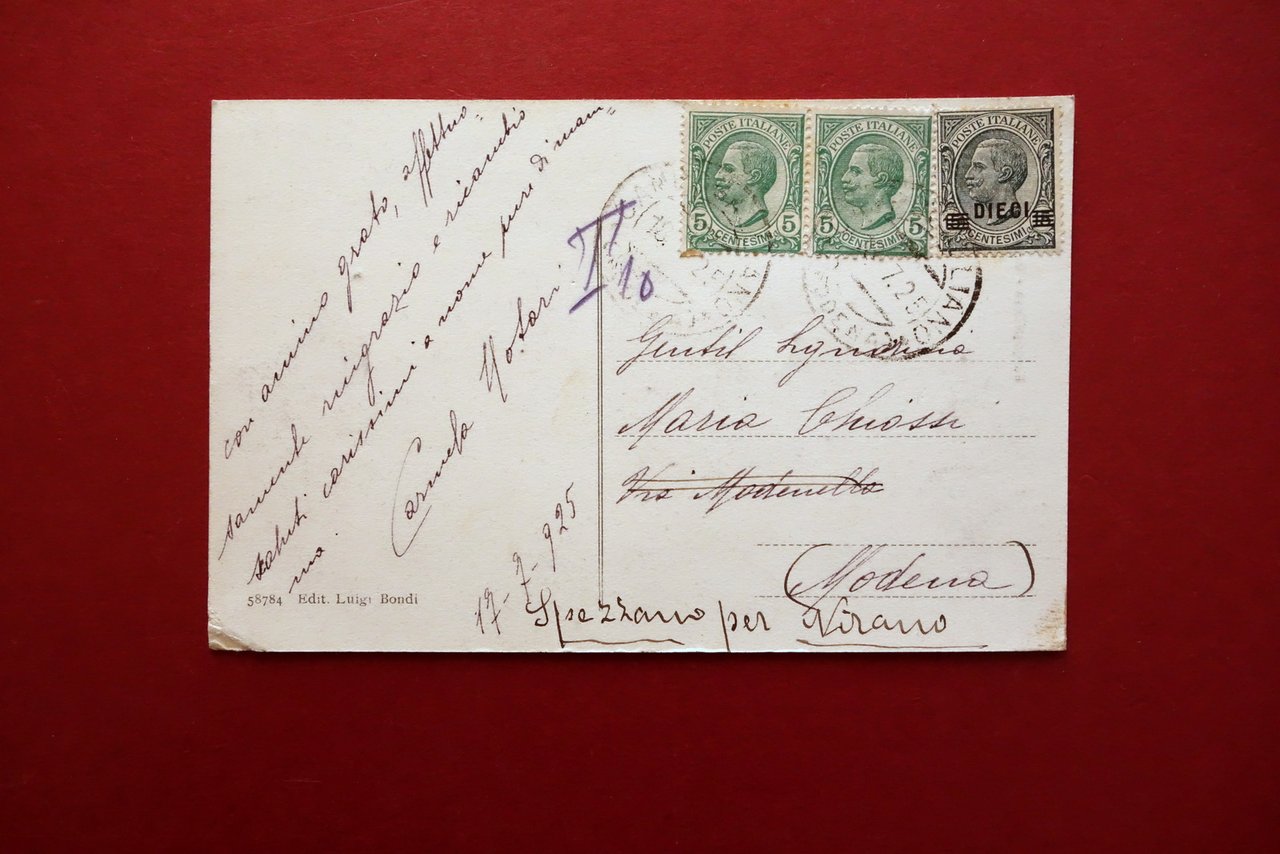 con animo grato, affettuo=
samente ringrazio e ricambio
saluti carissimi a nome pure di mam=
ma.
Carmela Notari
17-7-925
58784 Edit. Luigi Bondi
POSTE ITALIANE
5 CENTESIMI 5
POSTE ITALIANE
5 CENTESIMI 5
POSTE ITALIANE
DIECI
CENTESIMI
T 10
7.25
LIANO
Gentil Signorina
Maria Chiossi
Via Modenella
(Modena)
Spezzano per Nirano